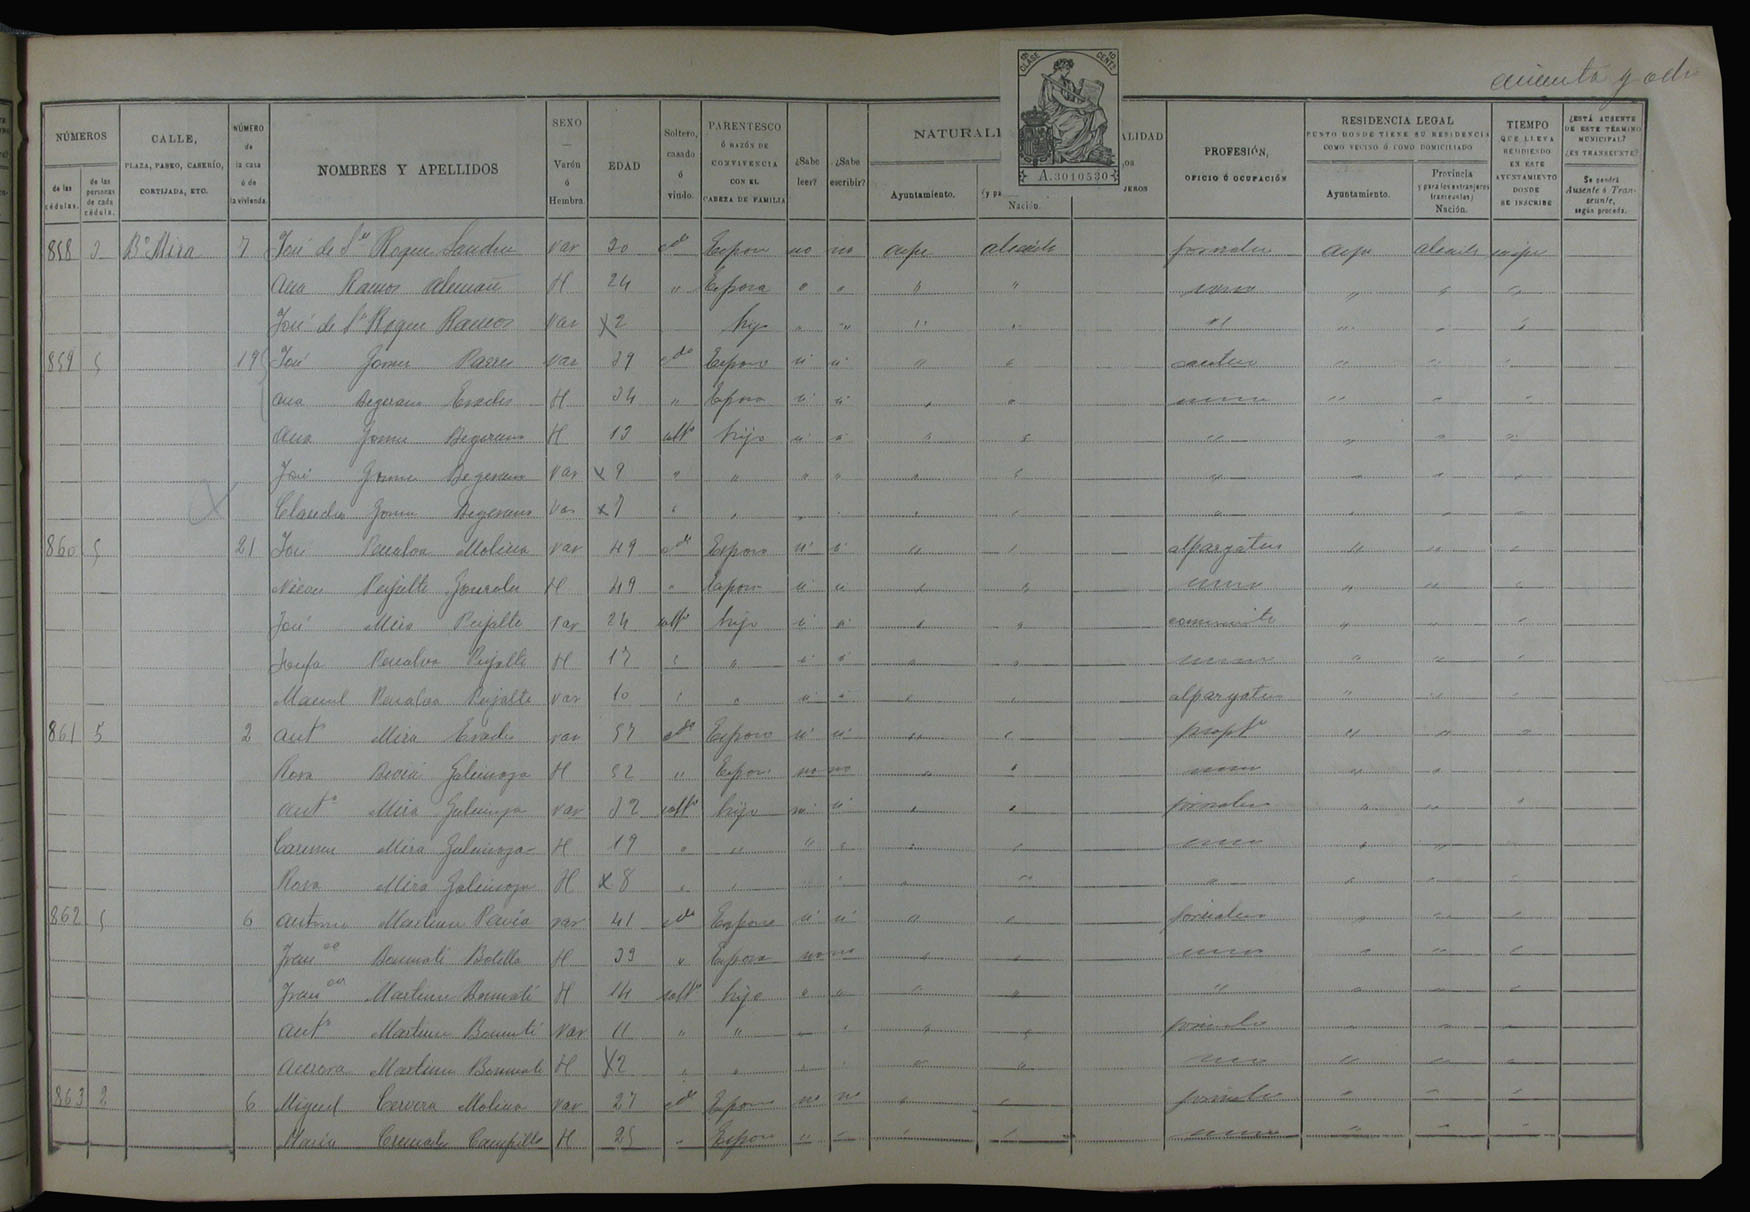 cuenta y ocho
10ª CLASE 10 CENTS
A.3010530
NÚMEROS
de las cédulas.
de las personas de cada cédula.
CALLE, PLAZA, PASEO, CASERÍO, CORTIJADA, ETC.
NÚMERO de la casa ó de la vivienda.
NOMBRES Y APELLIDOS
SEXO — Varón ó Hembra.
EDAD
Soltero, casado ó viudo.
PARENTESCO Ó RAZÓN DE CONVIVENCIA CON EL CABEZA DE FAMILIA
¿Sabe leer?
¿Sabe escribir?
NATURAL
ALIDAD
Ayuntamiento.
Nación.
JEROS
PROFESIÓN, OFICIO Ó OCUPACIÓN
RESIDENCIA LEGAL
PUNTO DONDE TIENE SU RESIDENCIA COMO VECINO Ó COMO DOMICILIADO
Ayuntamiento.
Provincia (y para los extranjeros transeuntes) Nación.
TIEMPO QUE LLEVA RESIDIENDO EN ESTE AYUNTAMIENTO DONDE SE INSCRIBE
¿ESTÁ AUSENTE DE ESTE TÉRMINO MUNICIPAL? ¿ES TRANSEUNTE?
Se pondrá Ausente ó Transeunte, según proceda.
858 3 Bº Mira 7 José de Sn Roque Sanchez Var 30 cdo Esposo no no aspe alicante jornalero aspe alicante
Ana Ramos Aleman H 24 " Esposa " " " "
José de Sn Roque Ramos Var x2 hijo " " " "
859 5 19 José Gomez Var 39 cdo Esposo si si " "
Ana Begerano H 34 " Esposa si si " "
Ana Gomez Begerano H 13 soltª hijo si si " "
José Gomez Begerano Var x9 " " " " " "
Claudio Gomez Begerano Var x7 " " " " " "
860 5 21 José Penalva Molina Var 49 cdo Esposo si si " " alpargatero
Pujalte Gonzalez H 49 " Esposa si si " "
José Mira Pujalte Var 24 soltº hijo si si " "
Josefa Penalva Pujalte H 17 " " si si " "
Manuel Penalva Pujalte Var 10 " " si si " " alpargatero
861 5 2 Antº Mira Var 57 cdo Esposo si si " " propº
Rosa Galinsoga H 52 " Esposa no no " "
Antº Mira Galinsoga Var 32 soltº hijo si si " " jornalero
Carmen Mira Galinsoga H 19 " " " " " "
Rosa Mira Galinsoga H x8 " " " " "
862 5 6 Antonio Martinez Pavía Var 41 cdo Esposo si si " " jornalero
Francª Bonmati Botella H 39 " Esposa no no " "
Francª Martinez Bonmati H 14 soltª hijo " " " "
Antº Martinez Bonmati Var 11 " " " " " " jornalero
Aurora Martinez Bonmati H x2 " " " " " "
863 2 6 Miguel Cervera Molina Var 27 cdo Esposo no no " " jornalero
María Cremades Campillo H 25 " Esposa " " " "